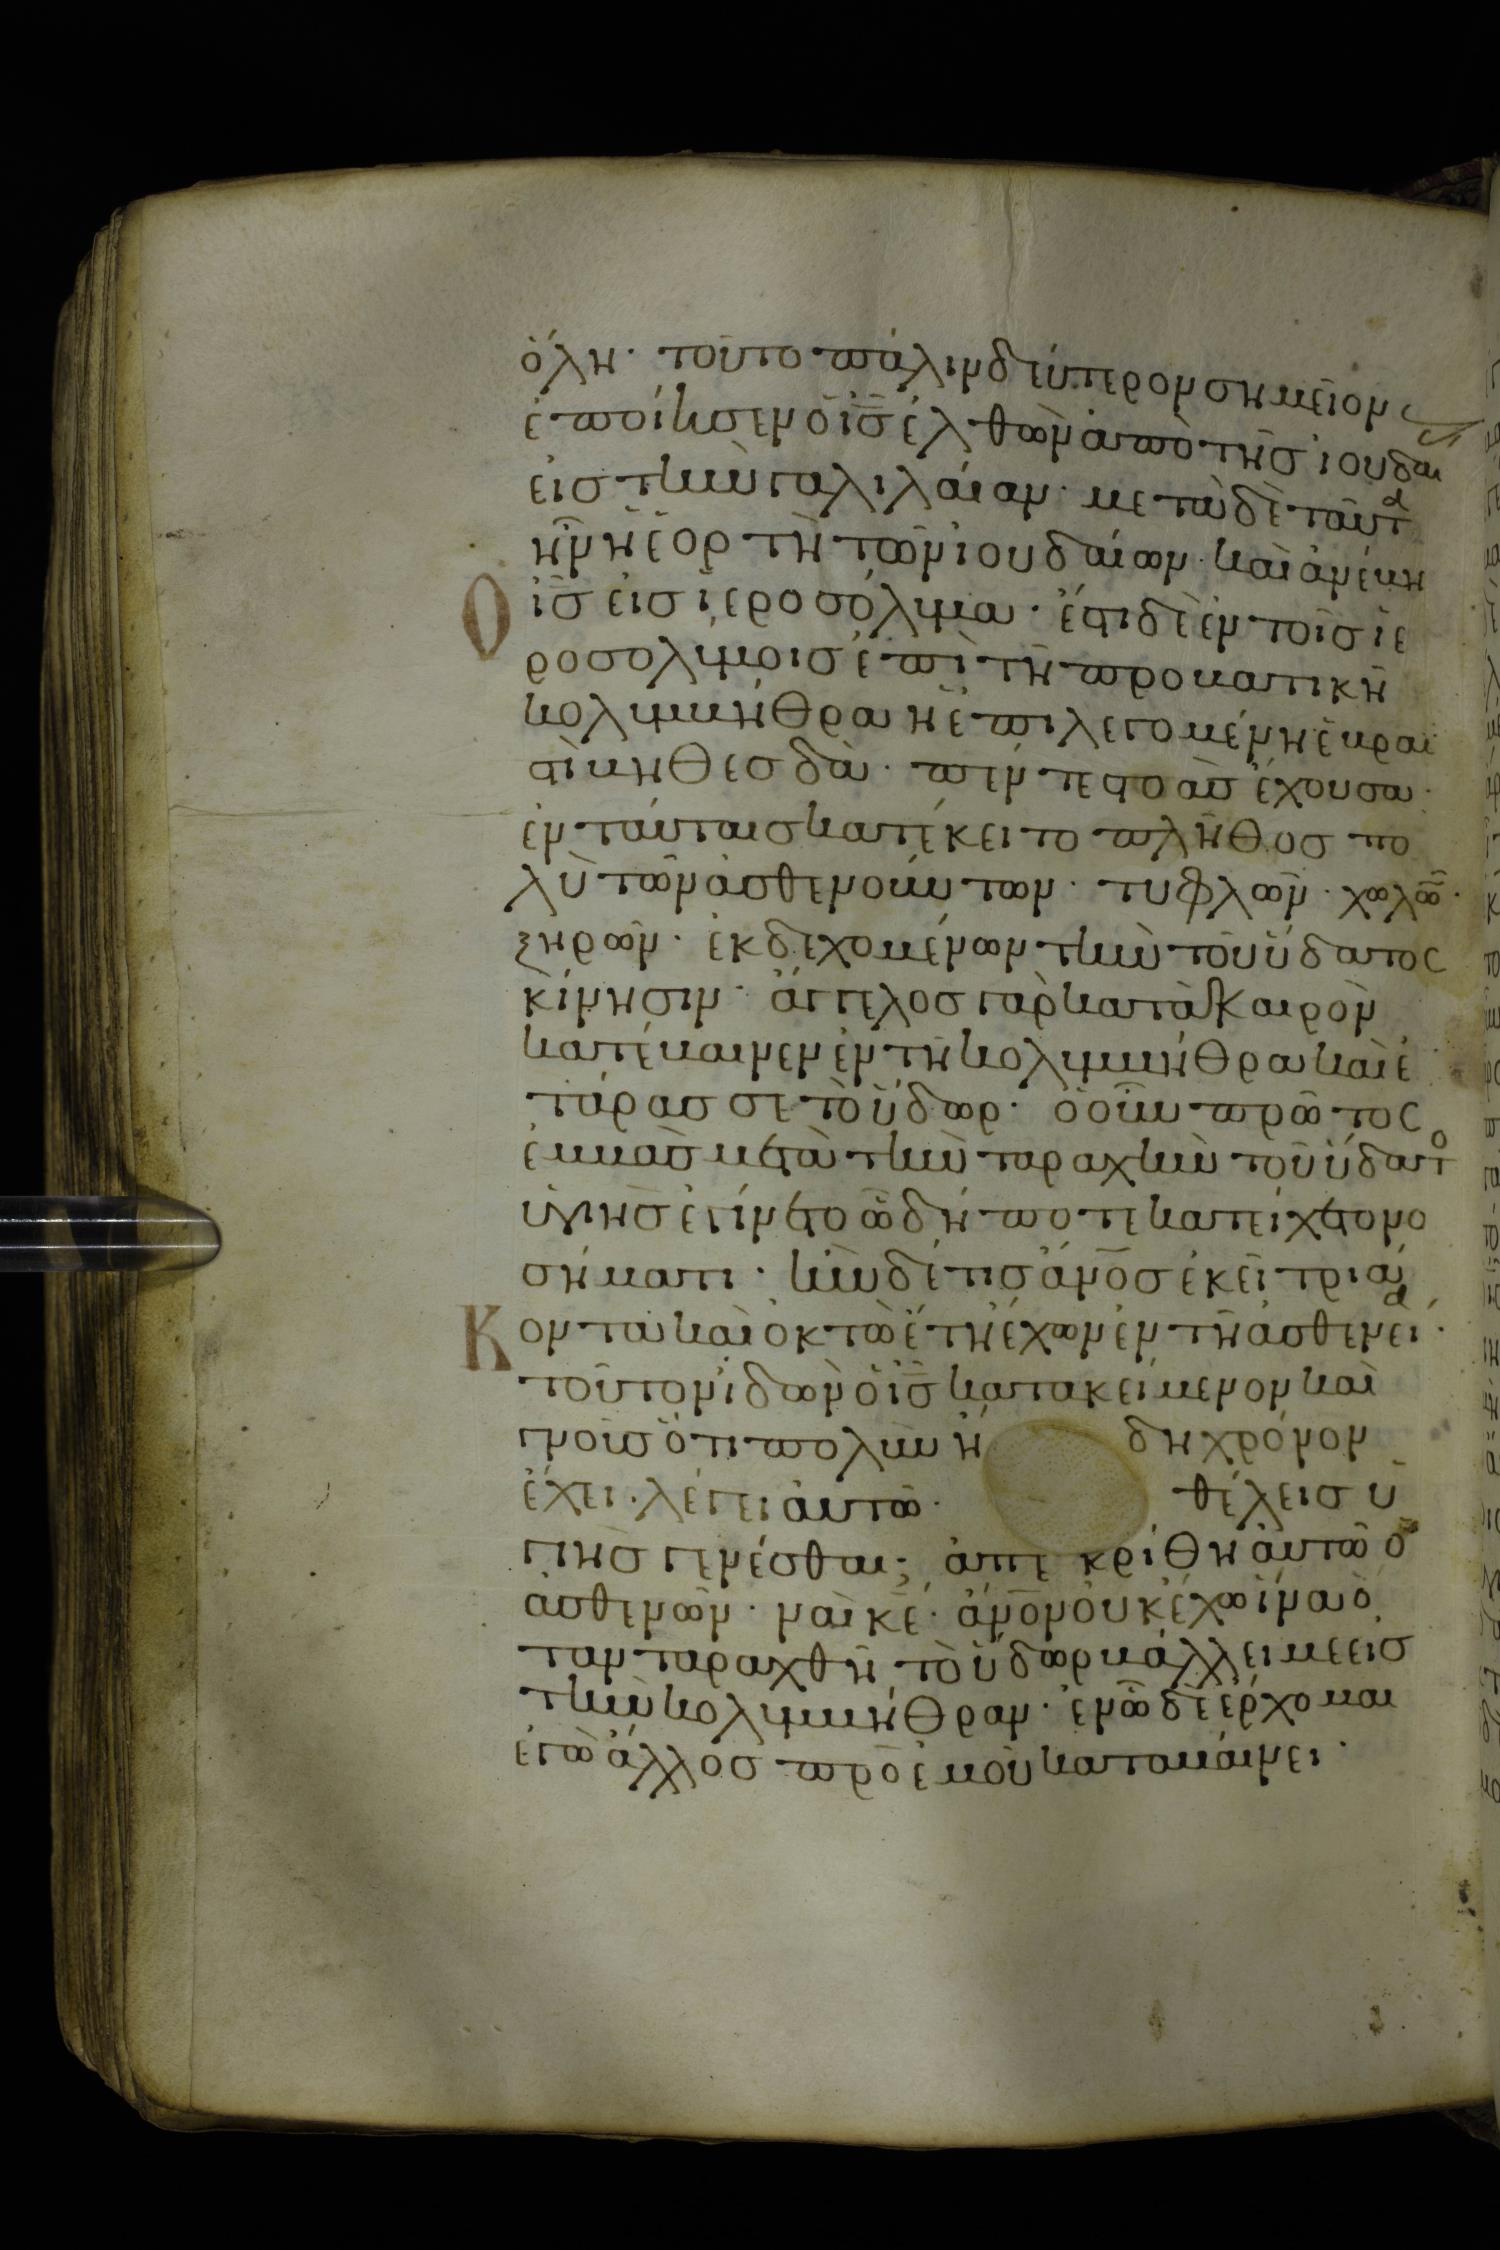 ὅλη· τοῦτο πάλιν δεύτερον σημεῖον
ἐποίησεν ὁ ι̅ς̅ ἐλθὼν ἀπὸ τῆς ἰουδαι
εἰς τὴν γαλιλαίαν· μετὰ δὲ ταῦτα
ἦν ἡ ἑορτὴ τῶν ἰουδαίων· καὶ ἀνέβη
Ὁ ι̅ς̅ εἰς ἱεροσόλυμα· ἔστι δὲ ἐν τοῖς ἱε
ροσολύμοις ἐπὶ τῇ προβατικῇ
κολυμβήθρα ἡ ἐπιλεγομένη ἑβραι
στὶ βηθεσδὰ· πέντε στοὰς ἔχουσα·
ἐν ταύταις κατέκειτο πλῆθος πο
λὺ τῶν ἀσθενούντων· τυφλῶν· χωλῶν·
ξηρῶν· ἐκδεχομένων τὴν τοῦ ὕδατος
κίνησιν· ἄγγελος γὰρ κατὰ καιρὸν
κατέβαινεν ἐν τῇ κολυμβήθρα καὶ ἐ
τάρασσε τὸ ὕδωρ· ὁ οὖν πρῶτος
ἐμβὰς μετὰ τὴν ταραχὴν τοῦ ὕδατο
ὑγιὴς ἐγίνετο ᾧ δήποτε κατείχετο νο
σήματι· ἦν δέ τις ἄν̅ο̅ς̅ ἐκεῖ τριά
Κοντα καὶ ὀκτὼ ἔτη ἔχων ἐν τῇ ἀσθενείᾳ·
τοῦτον ἰδὼν ὁ ι̅ς̅ κατακείμενον καὶ
γνοὺς ὅτι πολὺν ἤδη χρόνον
ἔχει· λέγει αὐτῶ· θέλεις ὑ
γιὴς γενέσθαι; ἀπεκρίθη αὐτῶ ὁ
ἀσθενῶν· ναὶ κ̅ε̅· ἄν̅ο̅ν̅ οὐκ ἔχω ἵνα ὅ
ταν ταραχθῆ τὸ ὕδωρ βάλλει με εἰς
τὴν κολυμβήθραν· ἐν ᾧ δὲ ἔρχομαι
ἐγὼ ἄλλος πρὸ ἐμοῦ καταβαίνει·